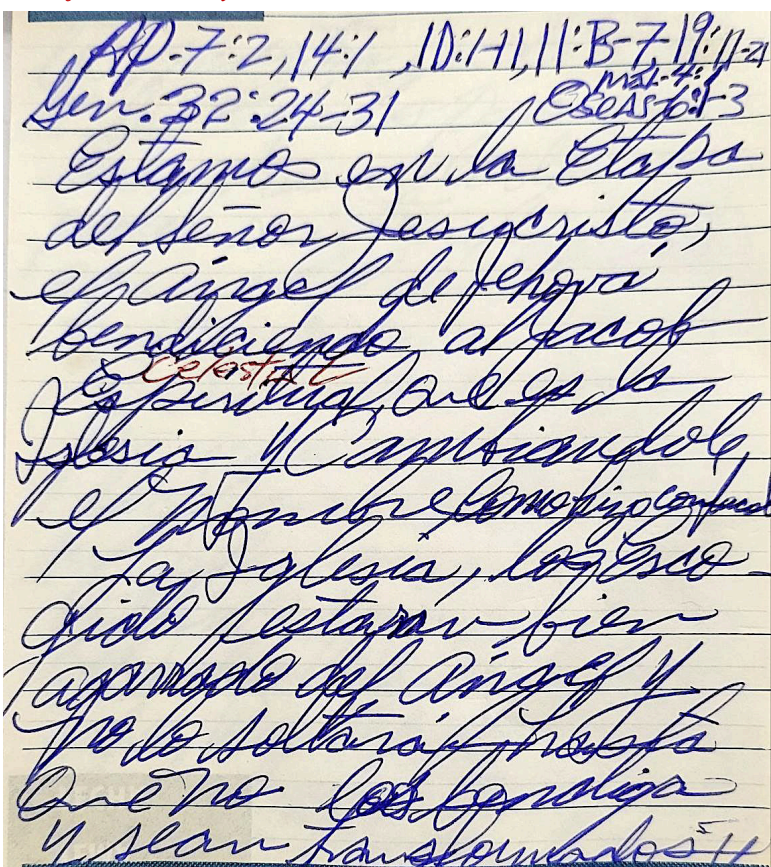 AP-7:2, 14:1, 10:1-11, 11:B-7, 19:11-21
Mal-4:1
Gen. 32:24-31 Oseas 6:1-3
Estamos en la Etapa
del Señor Jesucristo,
el Ángel de Jehová
bendiciendo al Jacob
Celestial
Espiritual, que es la
Iglesia y Cambiandole
el Nombre como hizo con Jacob
La Iglesia, los Esco-
gido estaran bien
agarrado del Ángel y
no lo soltará hasta
que no los bendiga
y sean transformados